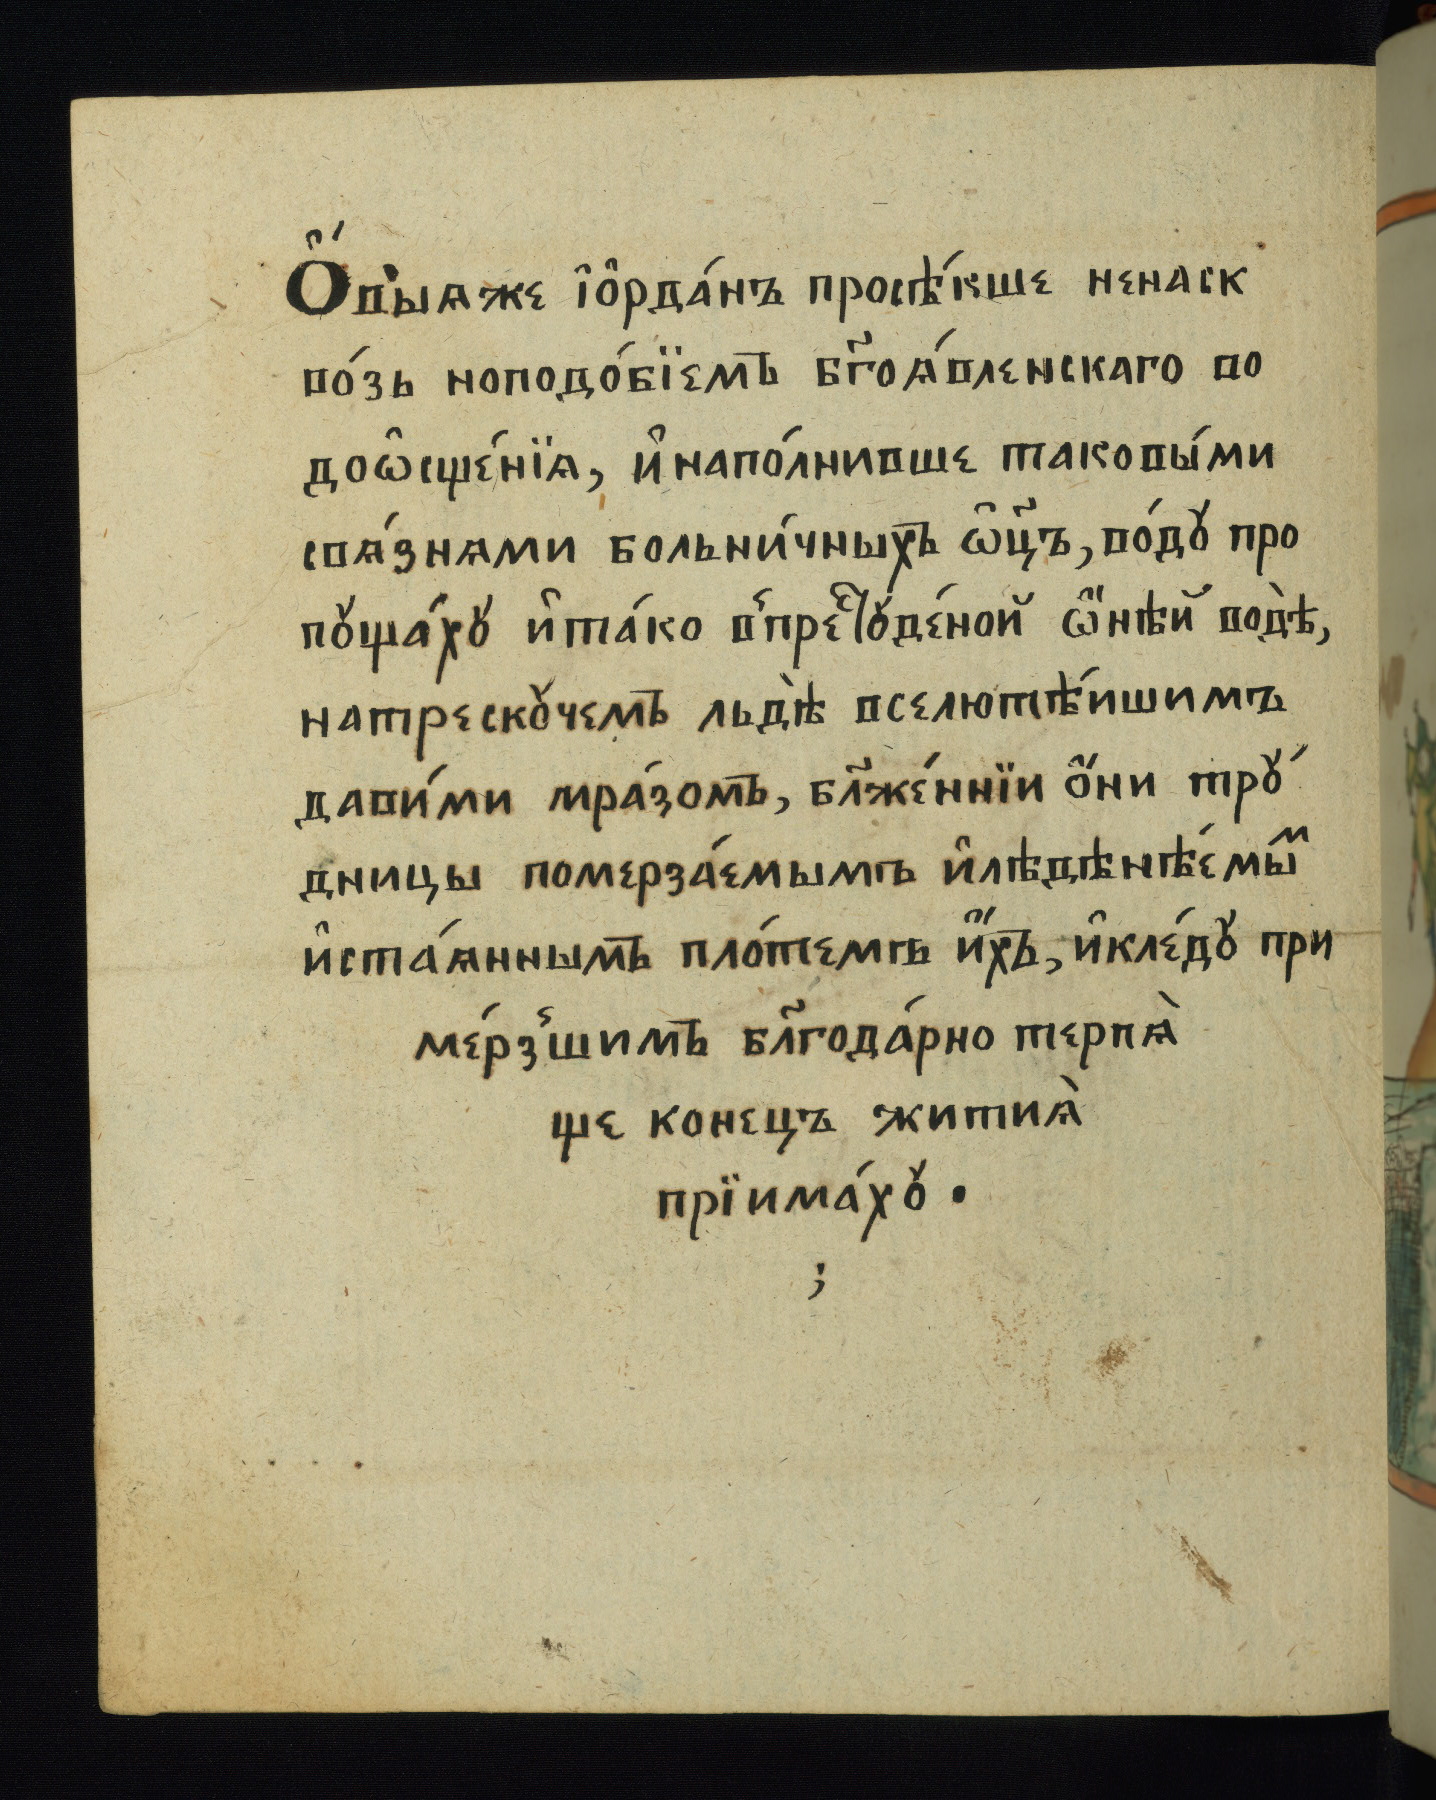 Ѻ҆́выѧже і҆ѻ҆рда́нъ просѣ́кше ненаск
во́зь ноподо́бїемъ бг҃оѧ́вленскаго во
доѡ҆сще́нїѧ, и҆напо́лнивше таковы́ми
свѧ́знѧми больни́чныхъ ѡ҆ц҃ъ, во́дꙋ про
пꙋща́хꙋ и҆та́ко в̾преⷭ҇тꙋде́ной ѡ҆́нѣй водѣ̀,
натрескꙋчемъ льдѣ̀ вселютѣ́ишимъ
дави́ми мра́зомъ, бл҃же́ннїи ѻ҆́ни трꙋ́
дницы померза́емымъ и҆лѣдѣнѣ́емыⷨ
и҆ста́ѧннымъ пло́темъ и҆́хъ, и҆кле́дꙋ при
ме́рз̾шимъ бл҃года́рно терпѧ̀
ще конецъ житиѧ̀
прїима́хꙋ .
;